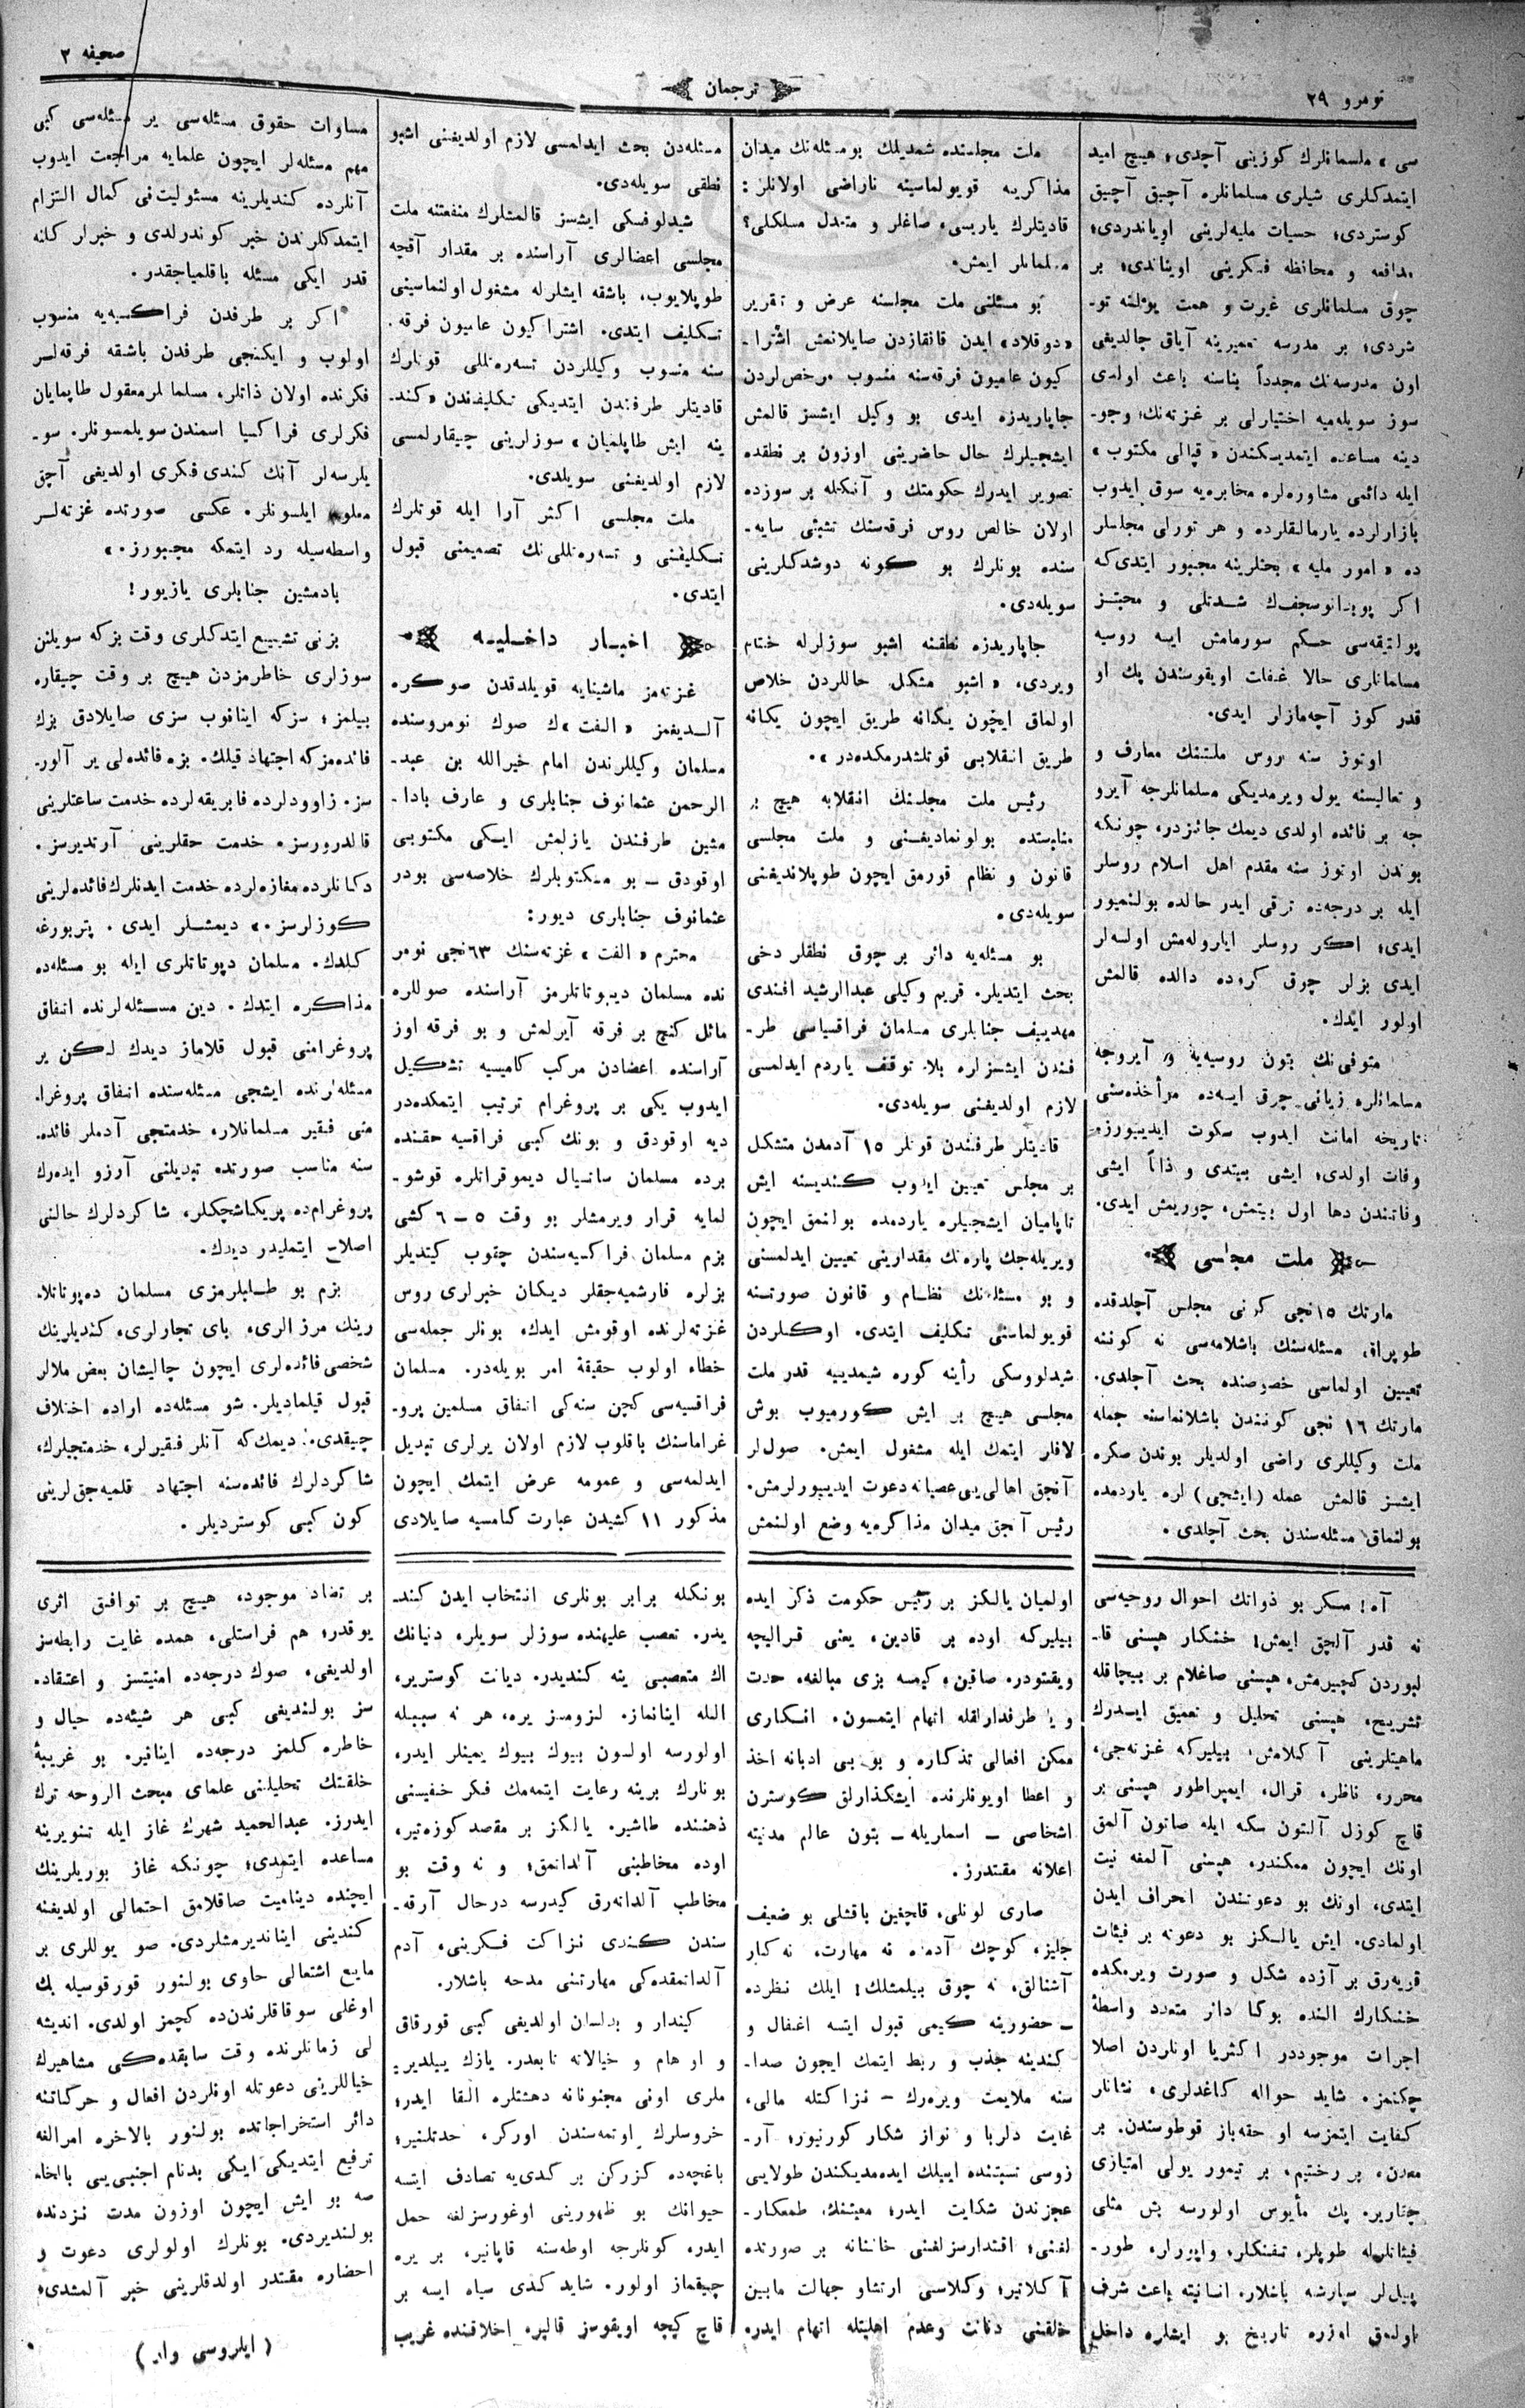 نومرو ٢٩
ترجمان
صحيفه ٣
سی» ملسمانلرك كوزینی آچدی؛ هیچ امید
ایتمدكلری شیلری مسلمانلره آچیق آچیق
كوستردی؛ حسیات ملیه‌لرینی اویاندردی؛
مدافعه و محافظه فكرینی اویناندی؛ بر
چوق مسلمانلری غیرت و همت یولنه تو-
شردی؛ بر مدرسه تعمیرینه آیاق چالدیغی
اون مدرسه‌نك مجدداً بناسنه باعث اولدی
سوز سویله‌میه اختیارلی بر غزته‌نك؛ وجو-
دینه مساعده ایتمدیكندن «قپالی مكتوب»
ایله دائمی مشاوره‌لره مخابره‌یه سوق ایدوب
بازارلرده یارمالقلرده و هر تورلی مجلسلر
ده «امور ملیه» بحثلرینه مجبور ایتدی‌كه
اكر پوبدانوسچف‌ك شدتلی و محبتسز
پولتیقه‌سی حكم سورمامش ایسه روسیه
مسلمانلری حالا غفلت اویقوسندن پك او
قدر كوز آچه‌مازلر ایدی.
اوتوز سنه روس ملتنك معارف و
و تعالیسنه یول ویرمدیكی مسلمانلرجه آیرو
جه بر فائده اولدی دیمك جائزدر، چونكه
بوندن اوتوز سنه مقدم اهل اسلام روسلر
ایله بر درجه‌ده ترقی ایدر حالده بولنمیور
ایدی؛ اكر روسلر ایاروله‌مش اولسه‌لر
ایدی بزلر چوق كروده دالده قالمش
اولور ایدك.
متوفی‌نك بتون روسیه‌یه و آیروجه
مسلمانلره زیانی چوق ایسه‌ده مرأخذه‌سنی
تاریخه امانت ایدوب سكوت ایدییورز.
وفات اولدی؛ ایشی بیتدی و ذاتاً ایشی
وفاتندن دها اول بیتمش، چوریمش ایدی.
ملت مجلسی
مارتك ١٥نجی كونی مجلس آچلدقده
طوپراق مسئله‌سنك باشلامه‌سی نه كوننه
تعیین اولماسی خصوصنده بحث آچلدی.
مارتك ١٦ نجی كونندن باشلانماسنه جمله
ملت وكیللری راضی اولدیلر بوندن صكره
ایشسز قالمش عمله (ایشچی) لره یاردمده
بولنماق مسئله‌سندن بحث آچلدی.
ملت مجلسنده شمدیلك بومسئله‌نك میدان
مذاكریه قویولماسینه ناراضی اولانلر:
قادیتلرك یاریسی، صاغلر و معتدل مسلكلی؟
مسلمانلر ایمش.
بو مسئلنی ملت مجلسنه عرض و تقریر
«دوقلاد» ایدن قافقازدن صایلانمش اشترا-
كیون عامیون فرقه‌سنه منسوب مرخص‌لردن
جاپاریدزه ایدی بو وكیل ایشسز قالمش
ایشچیلرك حال حاضرینی اوزون بر نطقده
تصویر ایدرك حكومتك و آنكله بر سوزده
اولان خالص روس فرقه‌سنك تشبثی سایه-
سنده بونلرك بو كونه دوشدكلرینی
سویله‌دی.
جاپاریدزه نطقنه اشبو سوزلرله ختام
ویردی، «اشبو مشكل حاللردن خلاص
اولماق ایچون یكانه طریق ایچون یكانه
طریق انقلابی قوتلشدرمكده‌در».
رئیس ملت مجلسنك انقلابه هیچ بر
مناسبتده بولونمادیغنی و ملت مجلسی
قانون و نظام قورمق ایچون طوپلاندیغنی
سویله‌دی.
بو مسئله‌یه دائر بر چوق نطقلر دخی
بحث ایتدیلر. قریم وكیلی عبدالرشید افندی
مهدییف جنابلری مسلمان فراقسیاسی طر-
فندن ایشسزلره بلا توقف یاردم ایدلمسی
لازم اولدیغنی سویله‌دی.
قادیتلر طرفندن قوتلر ١٥ آدمدن متشكل
بر مجلس تعیین ایدوب كندیسنه ایش
تاپامیان ایشچیلره یاردمده بولنمق ایچون
ویریله‌جك پاره‌نك مقدارینی تعیین ایدلمسنی
و بو مسئله‌نك نظام و قانون صورتنه
قویولماسنی تكلیف ایتدی. اوكلردن
شیدلووسكی رأینه كوره شیمدییه قدر ملت
مجلسی هیچ بر ایش كورمیوب بوش
لافلر ایتمك ایله مشغول ایمش. صول‌لر
آنجق اهالی‌یی عصیانه دعوت ایدییورلرمش.
رئیس آنجق میدان مذاكره‌یه وضع اولنمش
مسئله‌دن بحث ایدلمسی لازم اولدیغنی اشبو
نطقی سویله‌دی.
شیدلوفسكی ایشسز قالمشلرك منفعتنه ملت
مجلسی اعضالری آراسنده بر مقدار آقچه
طوپلایوب، باشقه ایشلرله مشغول اولنماسینی
تكلیف ایتدی. اشتراكیون عامیون فرقه-
سنه منسوب وكیللردن تسه‌ره‌تللی قوتلرك
قادیتلر طرفندن ایتدیكی تكلیفندن «كند-
ینه ایش طاپلمیان» سوزلرینی چیقارلمسی
لازم اولدیغنی سویلدی.
ملت مجلسی اكثر آرا ایله قوتلرك
تكلیفنی و تسه‌ره‌تللی‌نك تصمیمنی قبول
ایتدی.
اخبار داخلیه
غزته‌مز ماشینایه قویلدقدن صوكره
آلدیغمز «الفت»ك صوك نومروسنده
مسلمان وكیللرندن امام خیرالله بن عبد-
الرحمن عثمانوف جنابلری و عارف بادا-
مشین طرفندن یازلمش ایكی مكتوبی
اوقودق – بو مكتوبلرك خلاصه‌سی بودر
عثمانوف جنابلری دیور:
محترم «الفت» غزته‌سنك ٦٣نجی نومر
نده مسلمان دیپوتاتلرمز آراسنده صوللره
مائل كنج بر فرقه آیرلمش و بو فرقه اوز
آراسنده اعضادن مركب كامیسیه تشكیل
ایدوب یكی بر پروغرام ترتیب ایتمكده‌در
دیه اوقودق و بونك كبی فراقسیه حقنده
برده مسلمان ساتسیال دیموقراتلره قوشو-
لمایه قرار ویرمشلر بو وقت ٥–٦ كشی
بزم مسلمان فراكسیه‌سندن چقوب كیتدیلر
بزلره قارشمیه‌جقلر دیكان خبرلری روس
غزته‌لرنده اوقومش ایدك، بونلر جمله‌سی
خطاء اولوب حقیقة امر بویله‌در. مسلمان
فراقسیه‌سی كچن سنه‌كی اتفاق مسلمین پرو-
غراماسنك باقلوب لازم اولان یرلری تبدیل
ایدلمه‌سی و عمومه عرض ایتمك ایچون
مذكور ١١ كشیدن عبارت كامسیه صایلادی
مساوات حقوق مسئله‌سی یر مسئله‌سی كبی
مهم مسئله‌لر ایچون علمایه مراجعت ایدوب
آنلرده كندیلرینه مسئولیت‌نی كمال التزام
ایتمدكلرندن خبر كوندرلدی و خبرلر كلنه
قدر ایكی مسئله باقلمیاجقدر.
اكر بر طرفدن فراكسیه‌یه منسوب
اولوب و ایكنجی طرفدن باشقه فرقه‌لر
فكرنده اولان ذاتلر، مسلمانلر معقول طاپمایان
فكرلری فراكسیا اسمندن سویلمسونلر. سو-
یلرسه‌لر آنك كندی فكری اولدیغی آچق
معلوم ایلسونلر. عكسی صورتده غزته‌لر
واسطه‌سیله رد ایتمكه مجبورز.»
بادمشین جنابلری یازیور!
بزنی تشییع ایتدكلری وقت بزكه سویلنن
سوزلری خاطرمزدن هیچ بر وقت چیقاره
بیلمز؛ سزكه اینانوب سزی صایلادق بزك
فائده‌مزكه اجتهاد قیلك. بزه فائده‌لی یر آلور-
سز. زاوودلرده فابریقه‌لرده خدمت ساعتلرینی
قالدرورسز. خدمت حقلرینی آرتدیرسز.
دكانلرده مغازه‌لرده خدمت ایدنلرك فائده‌لرینی
كوزلرسز.» دیمشلر ایدی. پتربورغه
كلدك. مسلمان دپوتاتلری ایله بو مسئله‌ده
مذاكره ایتدك. دین مسئله‌لرنده اتفاق
پروغرامنی قبول قلاماز دیدك لكن یر
مسئله‌لرنده ایشچی مسئله‌سنده اتفاق پروغرا-
منی فقیر مسلمانلار، خدمتچی آدملر فائده-
سنه مناسب صورتده تبدیلنی آرزو ایده‌رك
پروغرام‌ده پریكاشچكلر، شاكردلرك حالنی
اصلاح ایتملیدر دیدك.
بزم بو طلبلرمزی مسلمان ده‌پوتاتلا-
رینك مرزالری، بای تجارلری، كندیلرینك
شخصی فائده‌لری ایچون چالیشان بعض ملالر
قبول قیلمادیلر. شو مسئله‌ده اراده اختلاف
چیقدی: دیمك‌كه آنلر فقیرلر، خدمتچیلرك،
شاكردلرك فائده‌سنه اجتهاد قلمیه‌جق‌لرینی
كون كبی كوستردیلر.
آه! مكر بو ذواتك احوال روحیه‌سی
نه قدر آلچق ایمش! خنكار هپسنی قا-
لبوردن كچیرمش، هپسنی صاغلام بر بیچاقله
تشریح، هپسنی تحلیل و تعمیق ایدرك
ماهیتلرینی آكلامش، بیلیركه غزته‌جی،
محرر، ناظر، قرال، ایمپراطور هپسنی بر
قاچ كوزل آلتون سكه ایله صاتون آلمق
اونك ایچون ممكندر. هپسنی آلمغه نیت
ایتدی، اونك بو دعوتندن انحراف ایدن
اولمادی. ایش یالكز بو دعوته بر فیئات
قویه‌رق بر آزده شكل و صورت ویرمكده
خنكارك النده بوكا دائر متعدد واسطۀ
اجرات موجوددر اكثریا اونلردن اصلا
چكنمز. شاید حواله كاغدلری، نشانلر
كفایت ایتمزسه او حقه‌باز قوطوسندن. بر
معدن، بر رختیم، بر تیمور یولی امتیازی
چقاریر. پك مأیوس اولورسه بش مثلی
فیئاتلرله طوپلر، تفنكلر، واپورلر، طور-
پیل‌لر سپارشه باشلار. انسانیته باعث شرف
اولمق اوزره تاریخ بو ایشلره داخل
اولمیان یالكز بر رئیس حكومت ذكر ایده
بیلیركه اوده بر قادین، یعنی قرالیچه
ویقتودر. صاقین، كیمسه بزی مبالغه، حدت
و یا طرفدارلقله اتهام ایتمسون. افكاری
ممكن افعالی تذكاره و بو بی ادبانه اخذ
و اعطا اویونلرنده ایشكذارلق كوسترن
اشخاصی – اسماریله – بتون عالم مدنیته
اعلانه مقتدرز.
صاری لونلی، قاچغین باقشلی بو ضعیف
جلیز، كوچك آدمده نه مهارت، نه كبار
آشنالق، نه چوق بیلمشلك! ایلك نظرده
– حضورینه كیمی قبول ایتسه اغفال و
كندینه جذب و ربط ایتمك ایچون صدا-
سنه ملایمت ویره‌رك – نزاكتله مالی،
غایت دلربا و نواز شكار كورنیور؛ آر-
زوسی نسبتنده ایبلك ایده‌مدیكندن طولایی
عجزندن شكایت ایدر؛ معیتنك، طمعكار-
لغنی؛ اقتدارسزلغنی خائنانه بر صورتده
آكلاتیر؛ وكلاسی ارتشاو جهالت مابین
خلقنی دنائت وعدم اهلیتله اتهام ایدر.
بونكله برابر بونلری انتخاب ایدن كند-
یدر. تعصب علیهنده سوزلر سویلر، دنیانك
اك متعصبی ینه كندیدر. دیانت كوستریر،
الله اینانماز. لزومسز یره، هر نه سببله
اولورسه اولسون بیوك بیوك یمینلر ایدر،
بونلرك برینه رعایت ایتمه‌مك فكر خفیسنی
ذهننده طاشیر. یالكز بر مقصد كوزه‌تیر،
اوده مخاطبنی آلدانمق؛ و نه وقت بو
مخاطب آلدانه‌رق كیدرسه درحال آرقه-
سندن كندی نزاكت فكرینی، آدم
آلدانمقده‌كی مهارتنی مدحه باشلار.
كیندار و بدلسان اولدیغی كبی قورقاق
و اوهام و خیالاته تابعدر. یازك ییلدیر-
ملری اونی مجنونانه دهشتلره القا ایدر؛
خروسلرك اوتمه‌سندن اوركر، حدتلنیر؛
باغچه‌ده كزركن بر كدی‌یه تصادف ایتسه
حیوانك بو ظهورینی اوغورسزلغه حمل
ایدر، كونلرجه اوطه‌سنه قاپانیر، بر یره
چیقماز اولور. شاید كدی سیاه ایسه بر
قاچ كیجه اویقوسز قالیر. اخلاقنده غریب
بر تضاد موجود، هیچ بر توافق اثری
یوقدر؛ هم فراستلی، همده غایت رابطه‌سز
اولدیغی، صوك درجه‌ده امنیتسز و اعتقاد-
سز بولندیغی كبی هر شیئه‌ده خیال و
خاطره كلمز درجه‌ده اینانیر. بو غریبۀ
خلقتك تحلیلنی علمای مبحث الروحه ترك
ایدرز. عبدالحمید شهرك غاز ایله تنویرینه
مساعده ایتمدی؛ چونكه غاز بوریلرینك
ایچنده دینامیت صاقلامق احتمالی اولدیغنه
كندینی ایناندیرمشلردی. صو یوللری بر
مایع اشتعالی حاوی بولنور قورقوسیله بك
اوغلی سوقاقلرندن‌ده كچمز اولدی. اندیشه
لی زمانلرنده وقت سابقده‌كی مشاهیرك
خیاللرینی دعوتله اونلردن افعال و حركاتنه
دائر استخراجاتده بولنور بالاخره امرالغه
ترفیع ایتدیكی ایكی بدنام اجنبی‌یی بالخا-
صه بو ایش ایچون اوزون مدت نزدنده
بولندیردی. بونلرك اولولری دعوت و
احضاره مقتدر اولدقلرینی خبر آلمشدی؛
(ایلروسی وار)